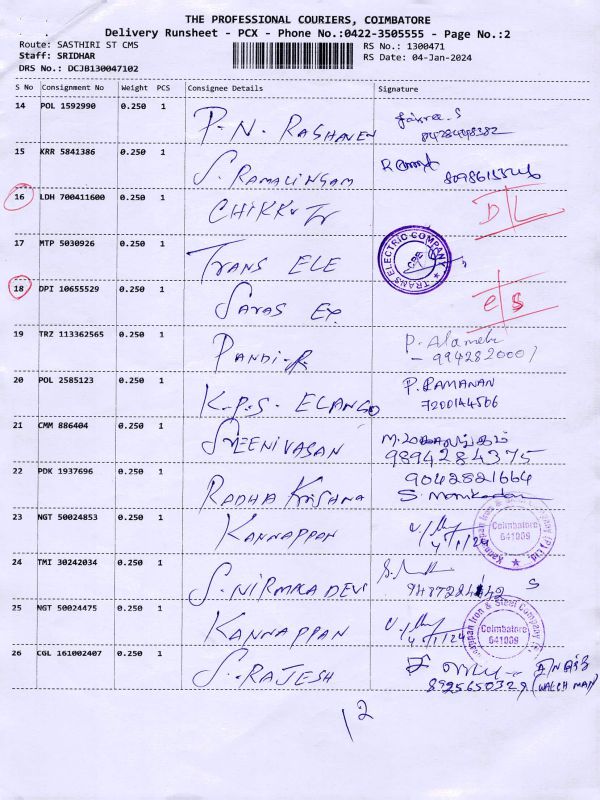 THE PROFESSIONAL COURIERS, COIMBATORE
Delivery Runsheet - PCX - Phone No.:0422-3505555 - Page No.:2
Route: SASTHIRI ST CMS RS No.: 1300471
Staff: SRIDHAR RS Date: 04-Jan-2024
DRS No.: DCJB130047102
S No Consignment No Weight PCS Consignee Details Signature
14 POL 1592990 0.250 1 P.N. RASHAVEN
15 KRR 5841386 0.250 1 S. RAMALINGAM
16 LDH 700411600 0.250 1 CHIKKU Tr D/L
17 MTP 5030926 0.250 1 TRANS ELE TRANS ELECTRIC COMPANY CBE
18 DPI 10655529 0.250 1 SARAS EX e/s
19 TRZ 113362565 0.250 1 PANDI.R P. Alamelu
- 9942820001
20 POL 2585123 0.250 1 K.P.S. ELANGO P. RAMANAN
7200144566
21 CMM 886404 0.250 1 SREENIVASAN
9894284375
22 PDK 1937696 0.250 1 RADHA KRISHNA 9042821664
S. Manikandan
23 NGT 50024853 0.250 1 KANNAPPAN 4/1/24
Kannappan Iron & Steel Company (P) Ltd. Coimbatore 641009
24 TMI 30242034 0.250 1 S. NIRMALA DEVI
25 NGT 50024475 0.250 1 KANNAPPAN 4/1/24
Kannappan Iron & Steel Company (P) Ltd. Coimbatore 641009
26 CGL 161002407 0.250 1 S. RAJESH
8925650329 (WATCH MAN)
12